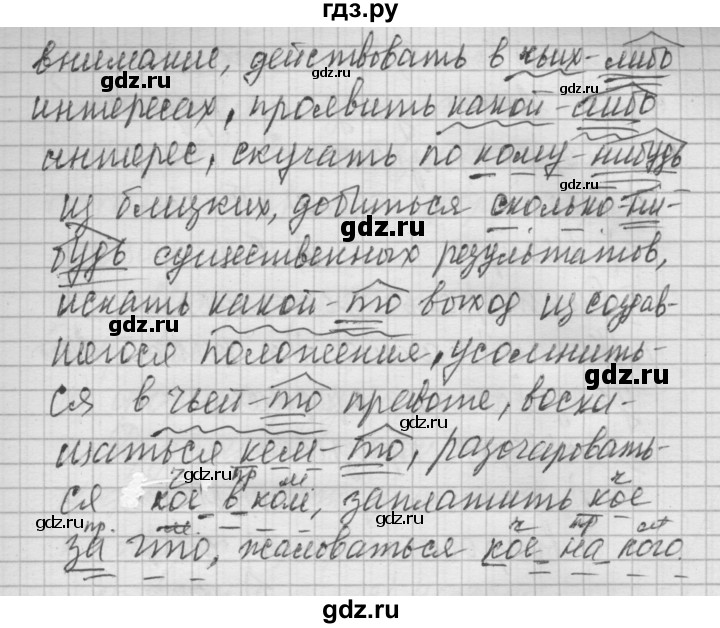 гдз.ру
внимание, действовать в чьих-либо
gdz.ru gdz.ru
интересах, проявить какой-либо
gdz.ru
интерес, скучать по кому-нибудь
gdz.ru
из близких, добиться сколько-ни-
gdz.ru
будь существенных результатов,
gdz.ru
искать какой-то выход из создав-
gdz.ru
шегося положения, усомнить-
gdz.ru
ся в чьей-то правоте, восхи-
gdz.ru
щаться кем-то, разочаровать-
gdz.ru
ч пр м ч
ся кое в ком, заплатить кое
gdz.ru gdz.ru
пр. м ч пр м
за что, жаловаться кое на кого.
gdz.ru
gdz.ru